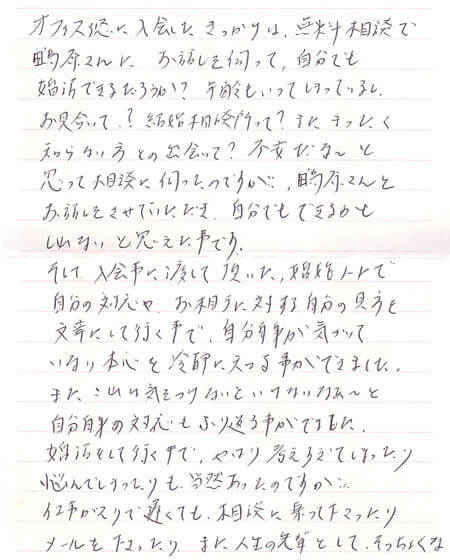 オフィス悠に入会したきっかけは、無料相談で
鴫原さんに お話しを伺って、自分でも
婚活できるだろうか? 年齢もいってしまっているし、
お見合いって.? 結婚相談所って? またまったく
知らない方との出会いって? 不安だな～と
思って相談に伺ったのですが…、鴫原さんと
お話しをさせていただき、自分でもできるかも
しれないと思えた事です。
そして 入会時に渡して頂いた、婚活ノートで
自分の対応や、お相手に対する自分の見方を
文章にして行く事で、自分自身が気づいて
いない本心を冷静にみつめる事ができました。
また、これは気をつけないといけないなぁ～と
自分自身の対応もふり返る事ができました。
婚活をして行く中で、やはり考えすぎてしまったり
悩んでしまったりも、当然あったのですが…
仕事がえりで遅くても、相談に乗って下さったり
メールを下さったり、また人生の先輩として、そっちょくな